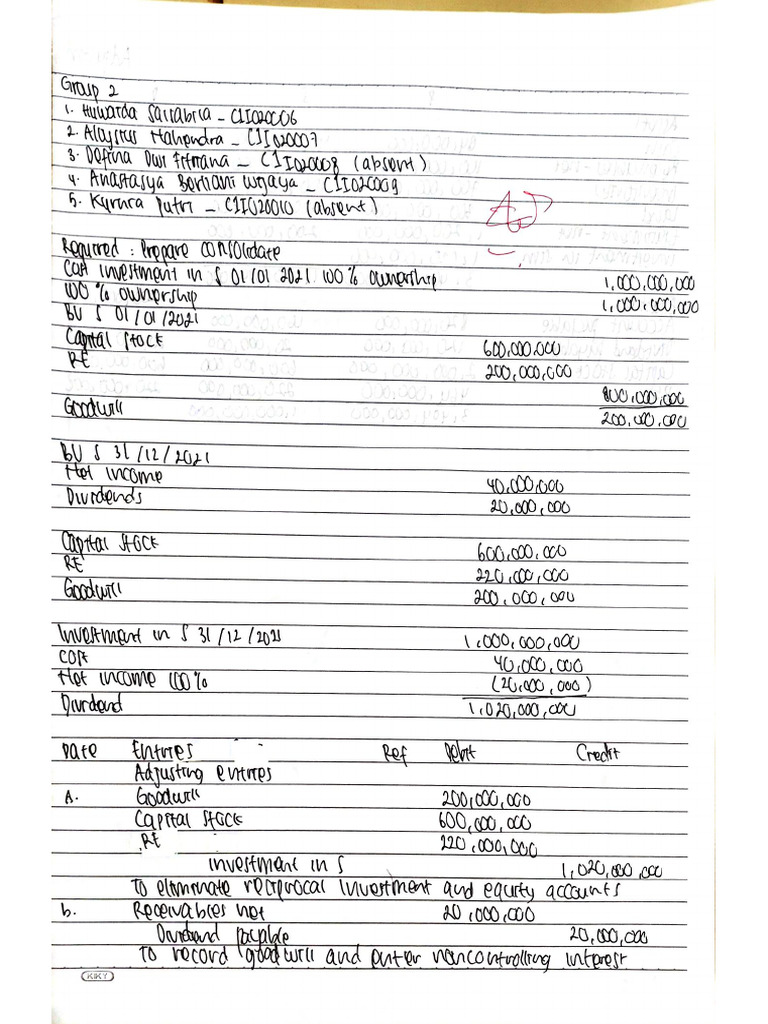 Group 2
1. Huwarda Sallabila - C1I020006
2. Aloysius Mahendra - C1I020007
3. Defina Dwi Fitriana - C1I020008 (absent)
4. Anastasya Berliani Wijaya - C1I020009
5. Kynara Putri - C1I020010 (absent)
Required : Prepare consolidate
Cost investment in S 01/01 2021 100% ownership 1,000,000,000
100 % ownership 1,000,000,000
BV S 01/01/2021
Capital Stock 600,000,000
RE 200,000,000
800,000,000
Goodwill 200,000,000
BV S 31/12/2021
Net income 40,000,000
Dividends 20,000,000
Capital Stock 600,000,000
RE 220,000,000
Goodwill 200,000,000
Investment in S 31/12/2021 1,000,000,000
COST 40,000,000
Net income 100% (20,000,000)
Dividend 1,020,000,000
Date Entries Ref Debit Credit
Adjusting entries
A. Goodwill 200,000,000
Capital Stock 600,000,000
RE 220,000,000
Investment in S 1,020,000,000
To eliminate reciprocal investment and equity accounts
b. Receivables net 20,000,000
Dividend payable 20,000,000
To record goodwill and enter noncontrolling interest
KIKY